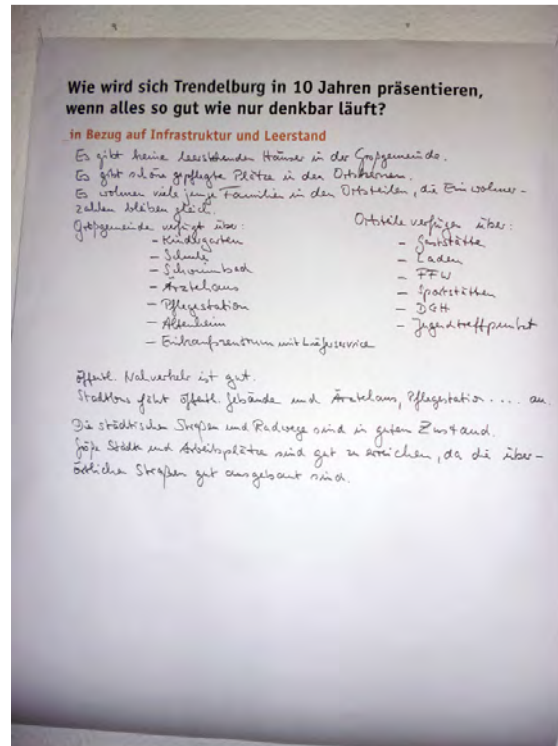 Wie wird sich Trendelburg in 10 Jahren präsentieren,
wenn alles so gut wie nur denkbar läuft?
in Bezug auf Infrastruktur und Leerstand
Es gibt keine leerstehenden Häuser in der Großgemeinde.
Es gibt schöne gepflegte Plätze in den Ortskernen.
Es wohnen viele junge Familien in den Ortsteilen, die Einwohner-
zahlen bleiben gleich.
Großgemeinde verfügt über:
- Kindergarten
- Schule
- Schwimmbad
- Ärztehaus
- Pflegestation
- Altenheim
- Einkaufszentrum mit Lieferservice
Ortsteile verfügen über:
- Gaststätte
- Laden
- FFW
- Sportstätten
- DGH
- Jugendtreffpunkt
öffentl. Nahverkehr ist gut.
Stadtbus fährt öffentl. Gebäude und Ärztehaus, Pflegestation .... an.
Die städtischen Straßen und Radwege sind in gutem Zustand.
Große Städte und Arbeitsplätze sind gut zu erreichen, da die über-
örtlichen Straßen gut ausgebaut sind.